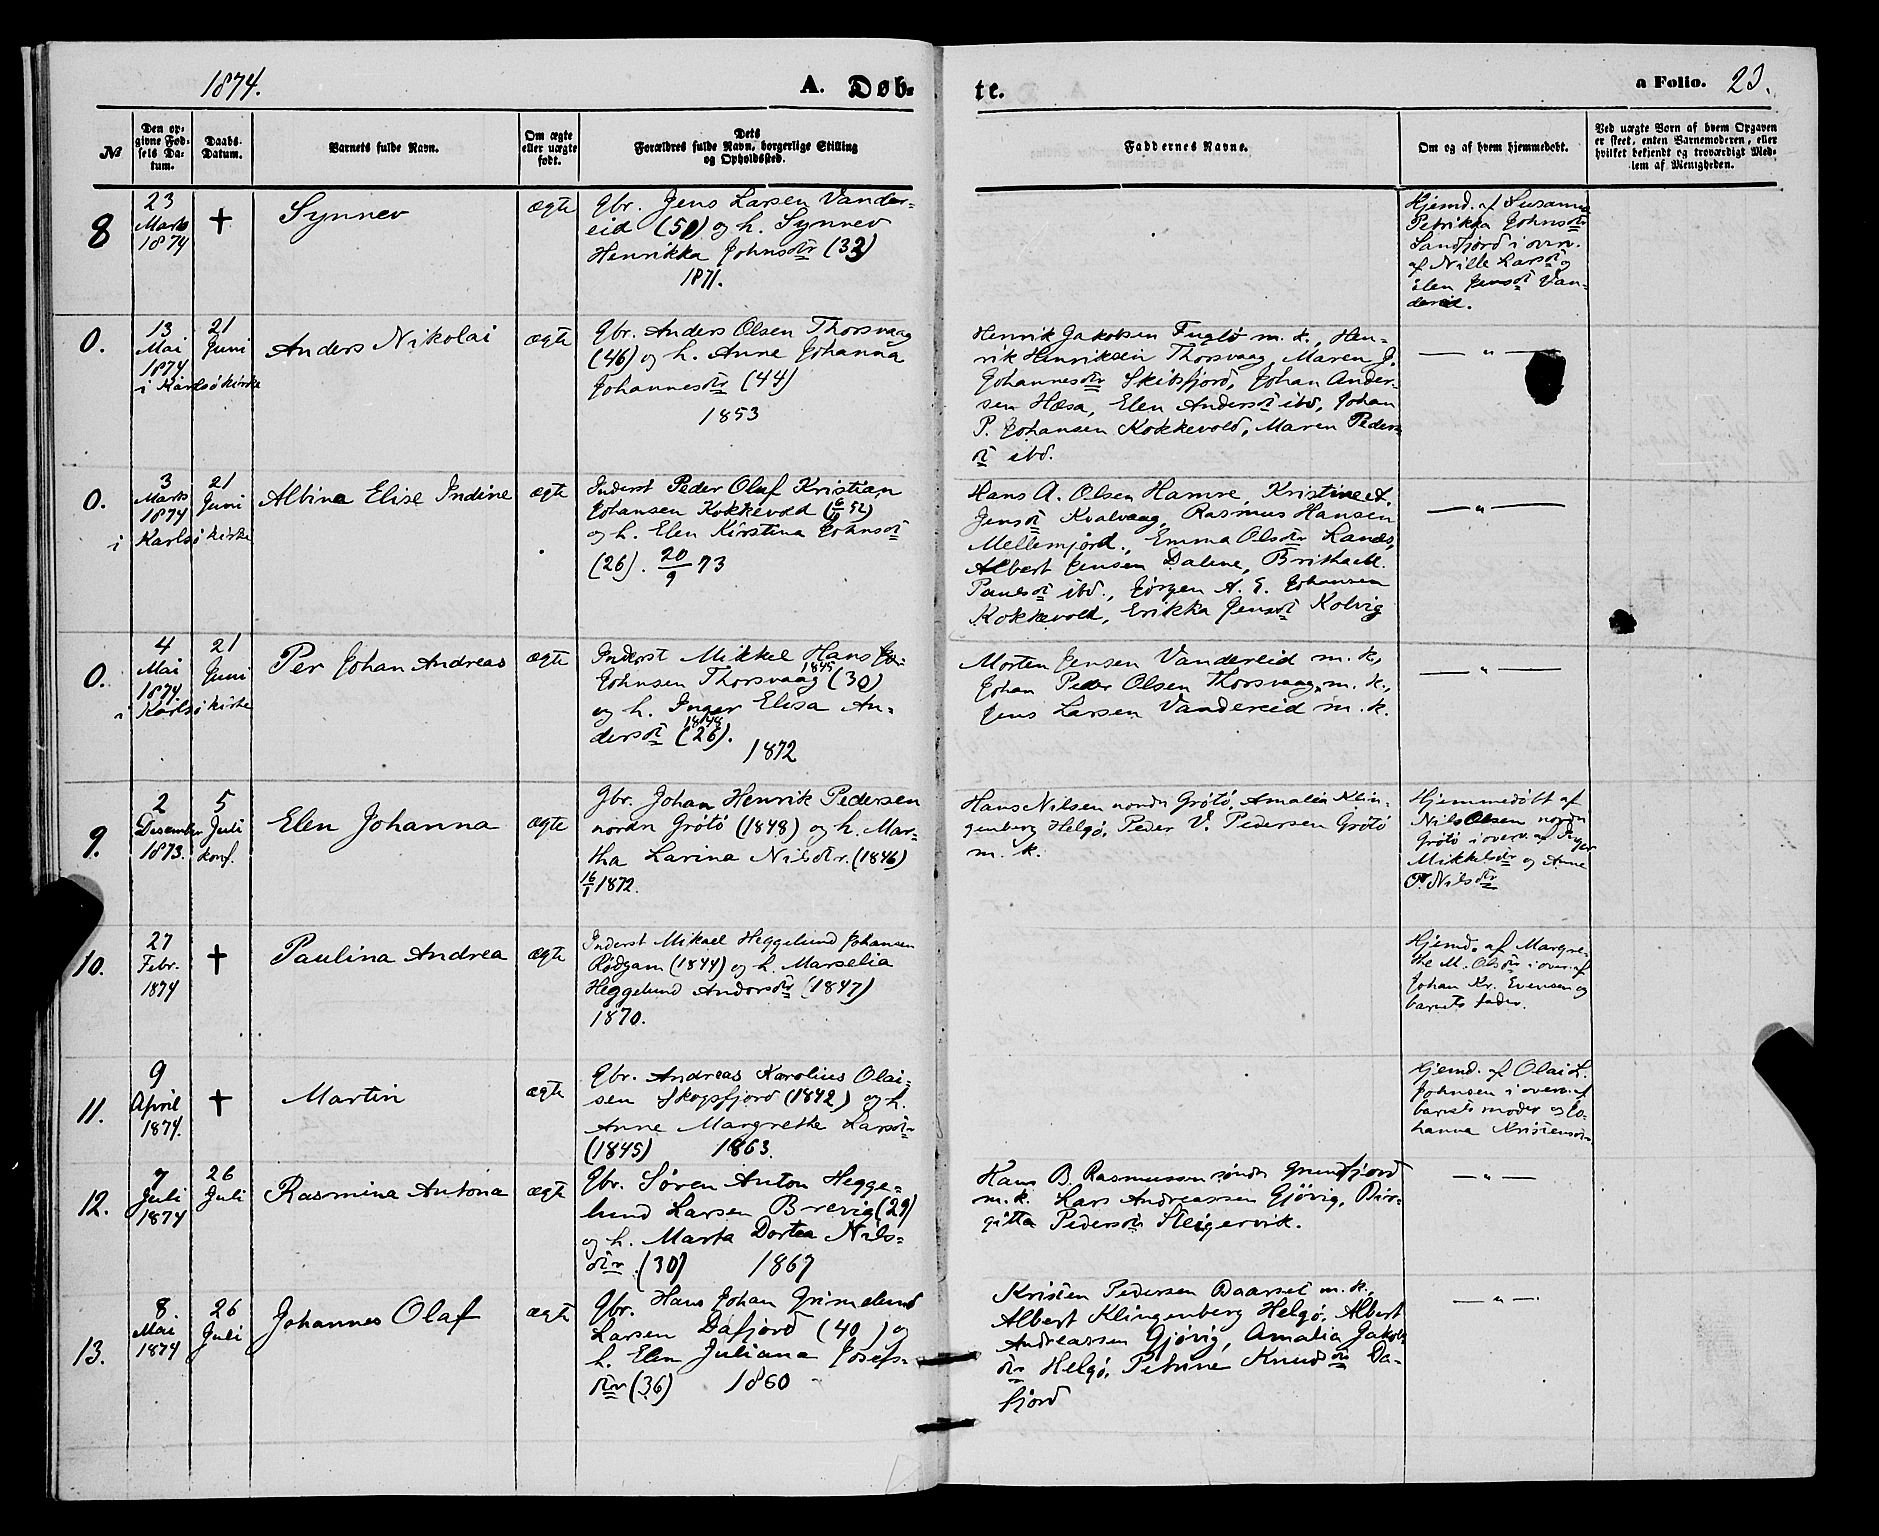 1874.
A. Døb-
te.
a Folio. 23.
№
Den op-
givne Fød-
sels Da-
tum.
Daabs-
Datum.
Barnets fulde Navn.
Om ægte
eller uægte
født.
Dets
Forældres fulde Navn, borgerlige Stilling
og Opholdssted.
Faddernes Navne.
Om og af hvem hjemmedøbt.
Ved uægte Børn af hvem Opgaven
er skeet, enten Barnemoderen, eller
hvilket bekjendt og troværdigt Med-
lem af Menigheden.
8
23
Marts
1874
+
Synnev
ægte
Gbr. Jens Larsen Vander-
eid (50) og h. Synnev
Henrikka Johnsdtr (33)
1871.
Hjemd. af Susanna
Petrikka Johnsdtr
Sandfjord i overv.
af Nille Larsdt og
Elen Jensdt Van-
dereid.
0.
13
Mai
1874
21
Juni
i Karlsö kirke
Anders Nikolai
ægte
Gbr. Anders Olsen Thorsvaag
(46) og h. Anne Johanna
Johannesdtr (44)
1853
Henrik Jakobsen Fuglø m. k., Hen-
rik Henriksen Thorsvaag, Maren J.
Johannesdtr Skibsfjord, Johan Ander-
sen Hæsa, Elen Andersdt ibd, Johan
P. Johansen Kokkevold, Maren Peders-
dt ibd.
— „ —
0.
3
Marts
1874
21
Juni
i Karlsö kirke
Albina Elise Indine
ægte
Inderst Peder Oluf Kristian
Johansen Kokkevold (52)
og h. Elen Kirstina Johnsdt
(26). 20/9 73
Hans A. Olsen Hamre, Kristine A.
Jensdt Kvalvaag, Rasmus Hansen
Mellemjord., Emma Olsdtr Lanes,
Albert Jensen Dalene, Britha M.
Paulsdt ibd., Jørgen A. E. Johansen
Kokkevold, Erikka Jensdt Kolvig
— „ —
0.
4
Mai
1874.
21
Juni
i Karlsö kirke
Per Johan Andreas
ægte
Inderst Mikkel Hans Jo-
1845
Johnsen Thorsvaag (30)
og h. Inger Elisa An-
1848
dersdt (26).
1872
Morten Jensen Vandereid m. k.,
Johan Peder Olsen Thorsvaag, m. k.,
Jens Larsen Vandereid m. k.
— „ —
9.
2
Desember
1873.
5
Juli
konf.
Elen Johanna
ægte
Gbr. Johan Henrik Pedersen
nordn Grötö (1848) og h. Mar-
tha Larina Nilsdtr. (1846)
16/1 1872.
Hans Nilsen nordn Grötö, Amalia Klin-
genberg Helgø, Peder V. Pedersen Grötö
m. k.
Hjemmedöbt af
Nils Olsen nordn
Grötö i overv. af Inger
Mikkelsdtr og Anne
O. Nilsdtr
10.
27
Febr.
1874
+
Paulina Andrea
ægte
Inderst Mikael Heggelund Johansen
Rödgam (1844) og h. Marselia
Heggelund Andorsdtr (1847)
1870.
Hjemd. af Margre-
the M. Olsdtr i over. af
Johan Kr. Evensen og
barnets fader.
11.
9
April
1874.
+
Martin
ægte
Gbr. Andreas Karolius Olai-
sen Skogsfjord (1842) og h.
Anne Margrethe Larsdtr
(1845) 1863.
Hjemd. af Olai L.
Johnsen i overv. af
barnets moder og Jo-
hanna Kristensdtr
12.
7
Juli
1874
26
Juli
Rasmina Antona
ægte
Gbr. Søren Anton Hegge-
lund Larsen Brevig (29)
og h. Marta Dortea Nils-
dtr. (30) 1867
Hans B. Rasmussen söndr Grundfjord
m. k. Lars Andreassen Gjövig, Bir-
gitta Pedersdtr Sleigervik.
— „ —
13.
8.
Mai
1874
26
Juli
Johannes Olaf
ægte
Gbr. Hans Johan Grimelund
Larsen Dafjord (40) og
h. Elen Juliana Josefs-
dtr (36) 1860
Kristen Pedersen Daarset m. k.,
Albert Klingenberg Helgø, Albert
Andreassen Gjøvig, Amalia Jakobs-
dtr Helgø, Petrine Knudsdtr Da-
fjord
— „ —